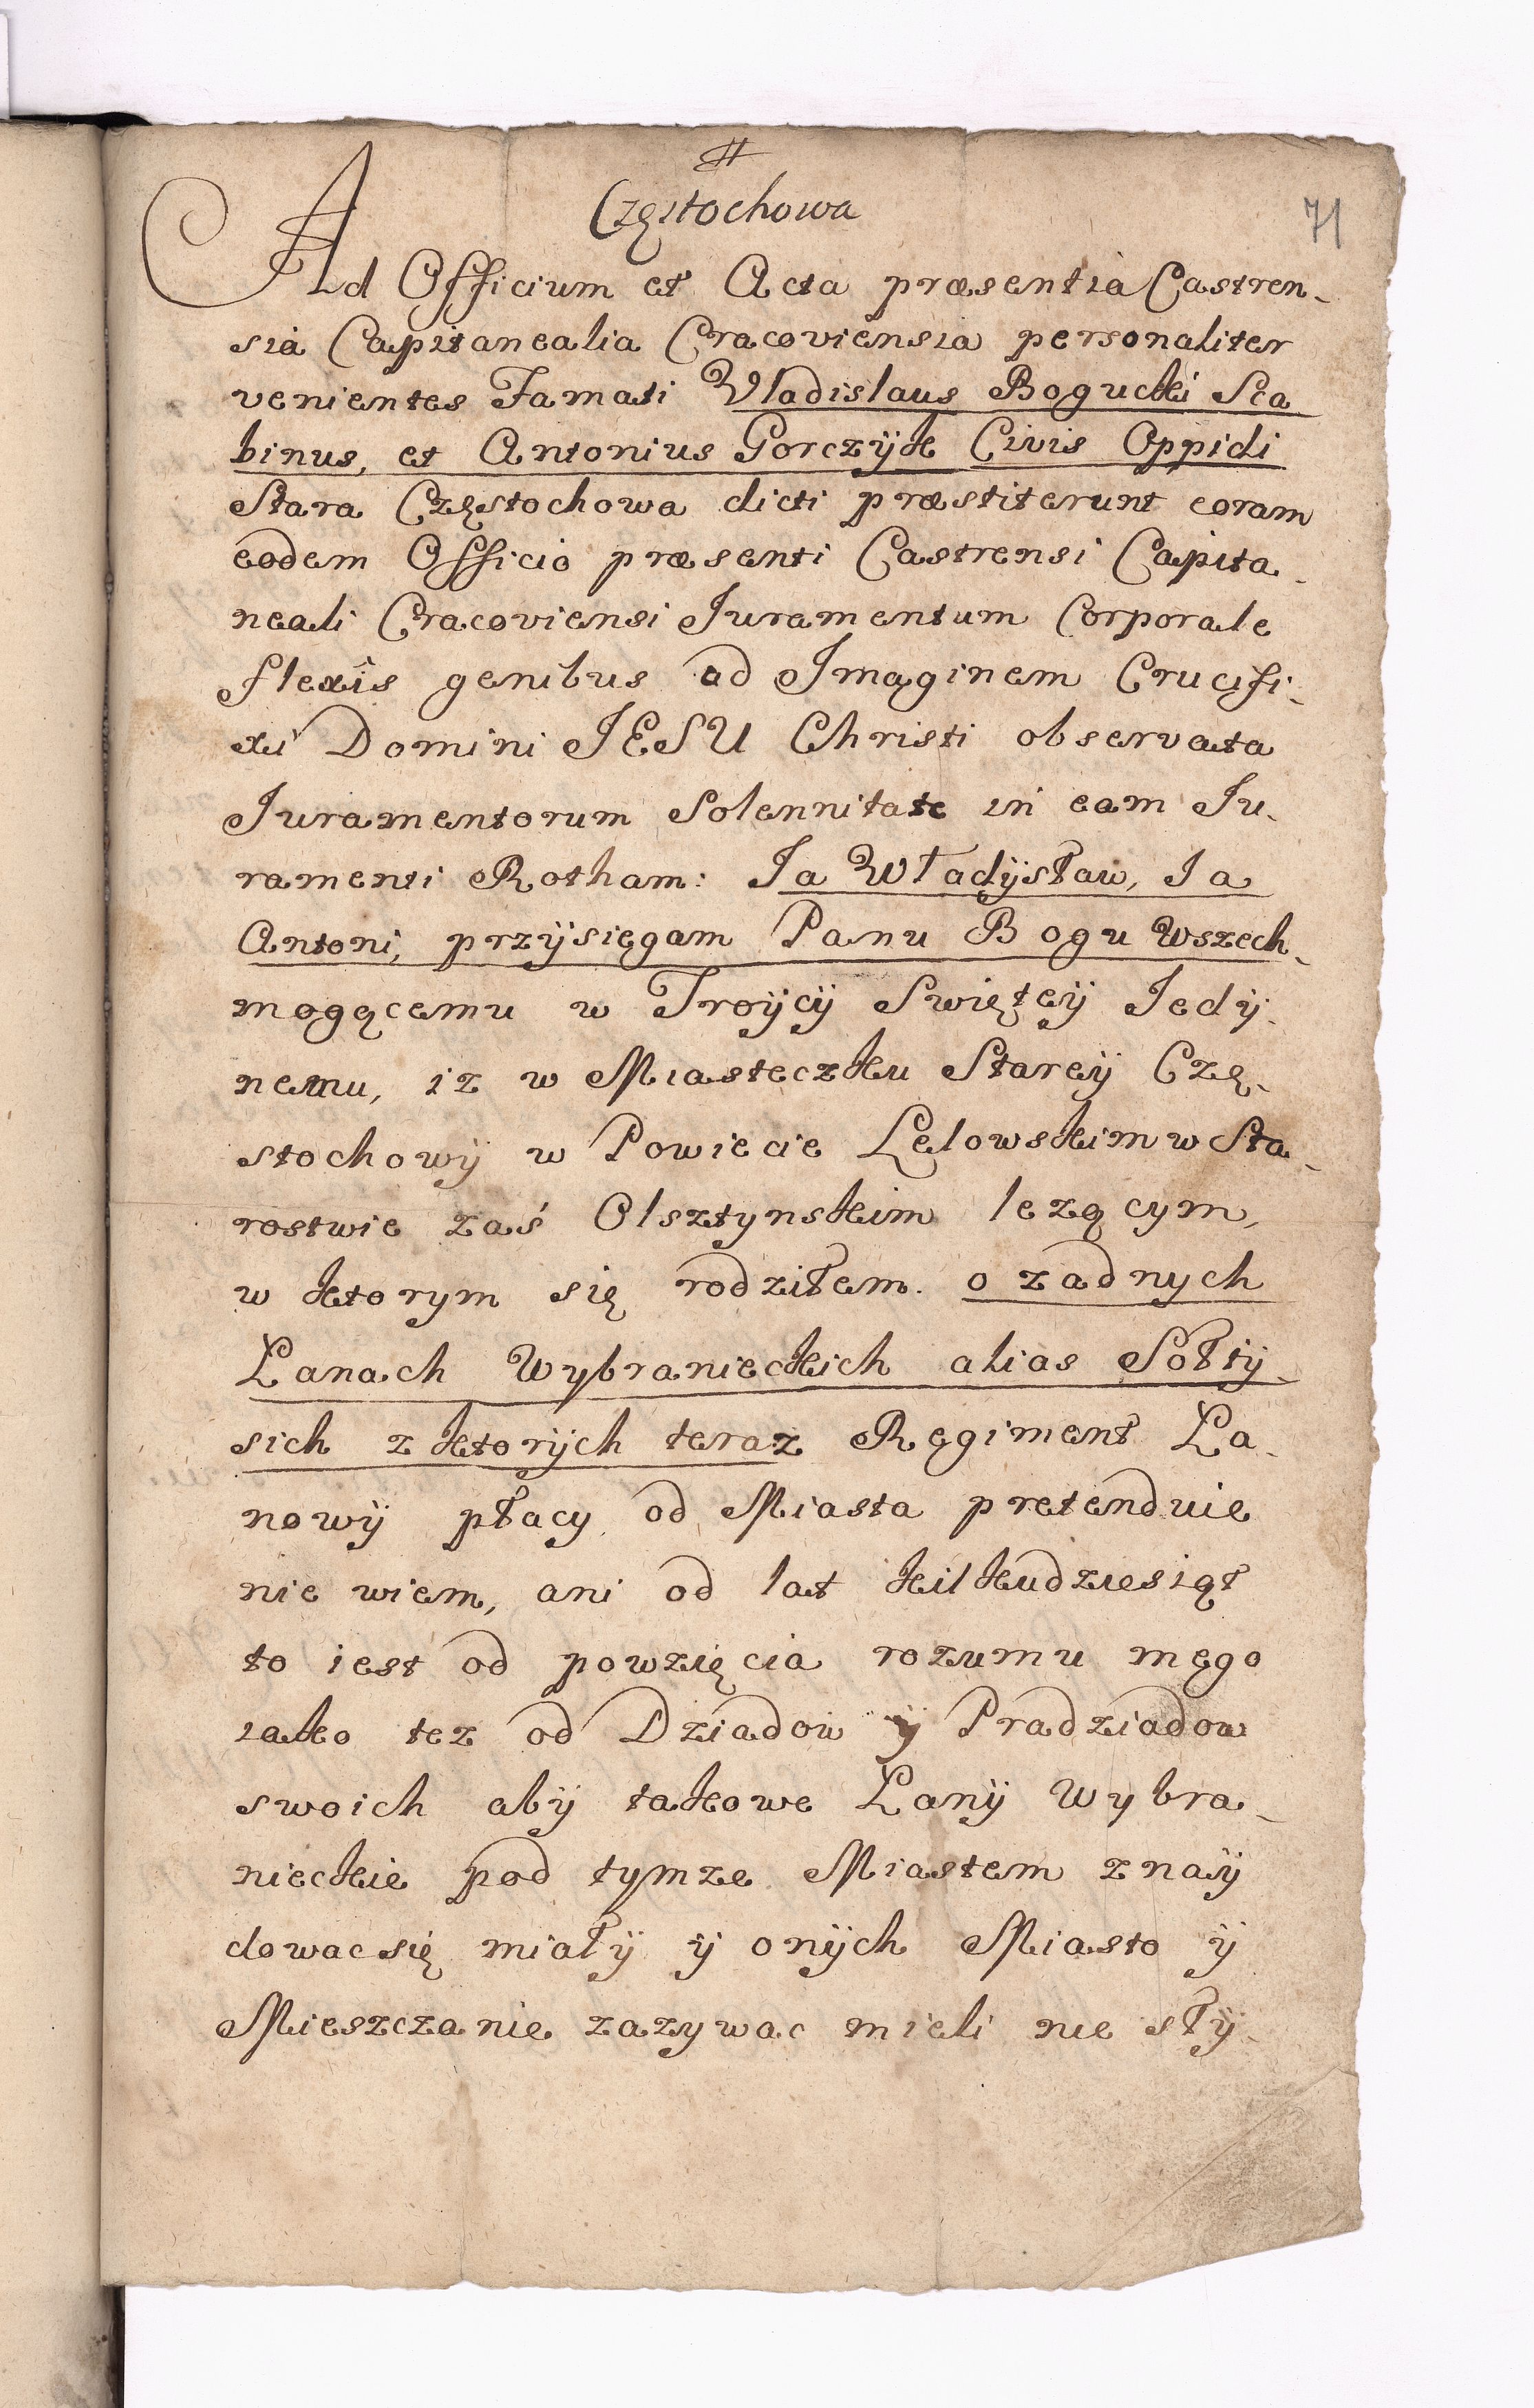 #
Częstochowa
71
Ad Officium et Acta præsentia Castren-
sia Capitanealia Cracoviensia personaliter
venientes Famati Vladislaus Bogucki Sca
binus, et Antonius Gorczÿk Civis Oppidi
Stara Częstochowa dicti præstiterunt coram
eodem Officio præsenti Castrensi Capita-
neali Cracoviensi Juramentum Corporale
flexis genibus ad Imaginem Crucifi-
xi Domini JESU Christi observata
Juramentorum Solennitate in eam Ju-
ramenti Rotham: Ja Władÿsław, Ja
Antoni, przÿsięgam Panu Bogu Wszech-
mogącemu w Troÿcÿ Swięteÿ Jedÿ-
nemu, iz w Miasteczku Stareÿ Czę-
stochowÿ w Powiecie Lelowskim w Sta-
rostwie zaś Olsztynskim lezącym,
w ktorym się rodziłem. o zadnych
Lanach Wybranieckich alias Sołtÿ-
sich z ktorÿch teraz Regiment La-
nowÿ płacy od Miasta pretenduie
nie wiem, ani od lat kilkudziesiąt
to iest od powzięcia rozumu mego
iako tez od Dziadow ÿ Pradziadow
swoich abÿ takowe Lanÿ Wybra-
nieckie pod tymze Miastem znaÿ
dowac się miałÿ ÿ onÿch Miasto ÿ
Mieszczanie zazywac mieli nie słÿ-